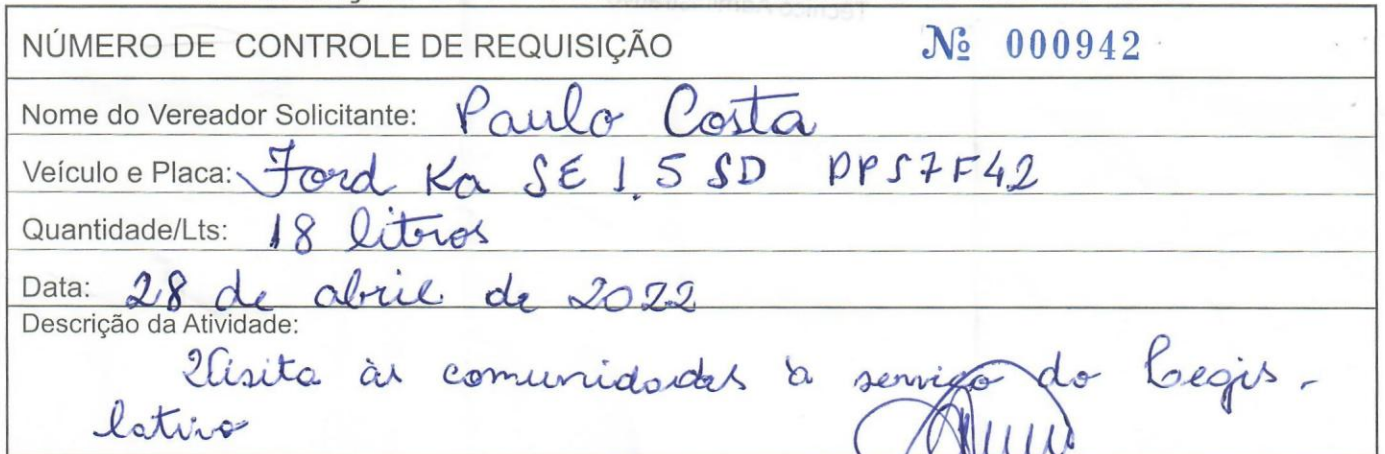 NÚMERO DE CONTROLE DE REQUISIÇÃO Nº 000942
Nome do Vereador Solicitante: Paulo Costa
Veículo e Placa: Ford Ka SE 1.5 SD PPS7F42
Quantidade/Lts: 18 litros
Data: 28 de abril de 2022
Descrição da Atividade:
Visita às comunidades à serviço do Legis-
lativo